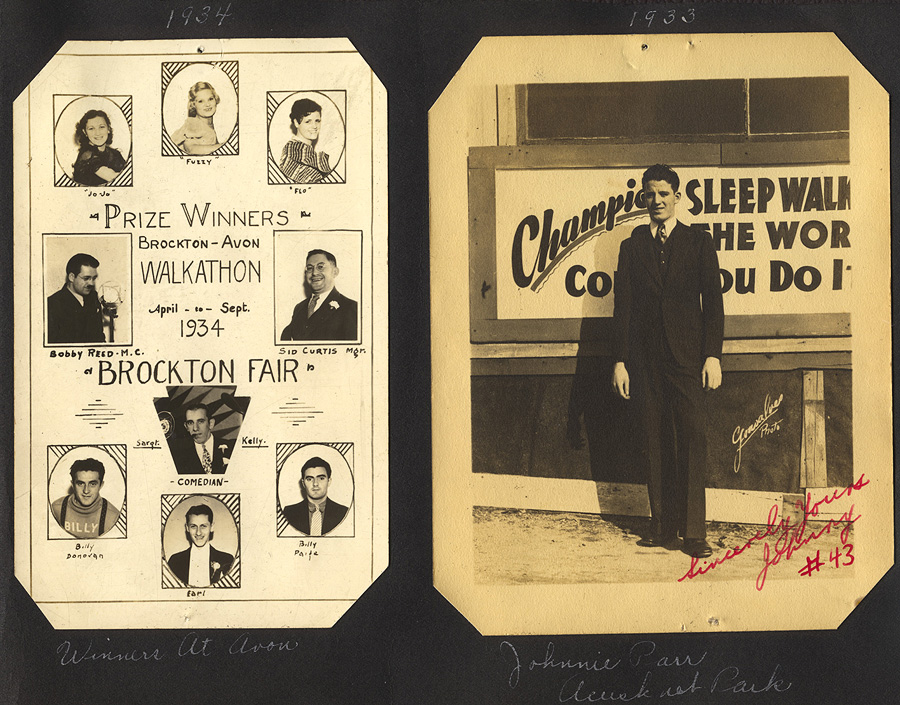 1934
"Jo-Jo"
"Fuzzy"
"Flo"
Prize Winners
Brockton-Avon
Walkathon
April - to - Sept.
1934
Bobby Reed-M.C.
Sid Curtis Mgr.
Brockton Fair
Sargt. Kelly.
-Comedian-
Billy
Billy
Donovan
Billy
Earl
Winners At Avon
1933
Champio SLEEP WALK
THE WOR
Co ou Do I
Gonsalves
Photo
Sincerely Yours
Johnny
#43
Johnnie Parr
Acushnet Park